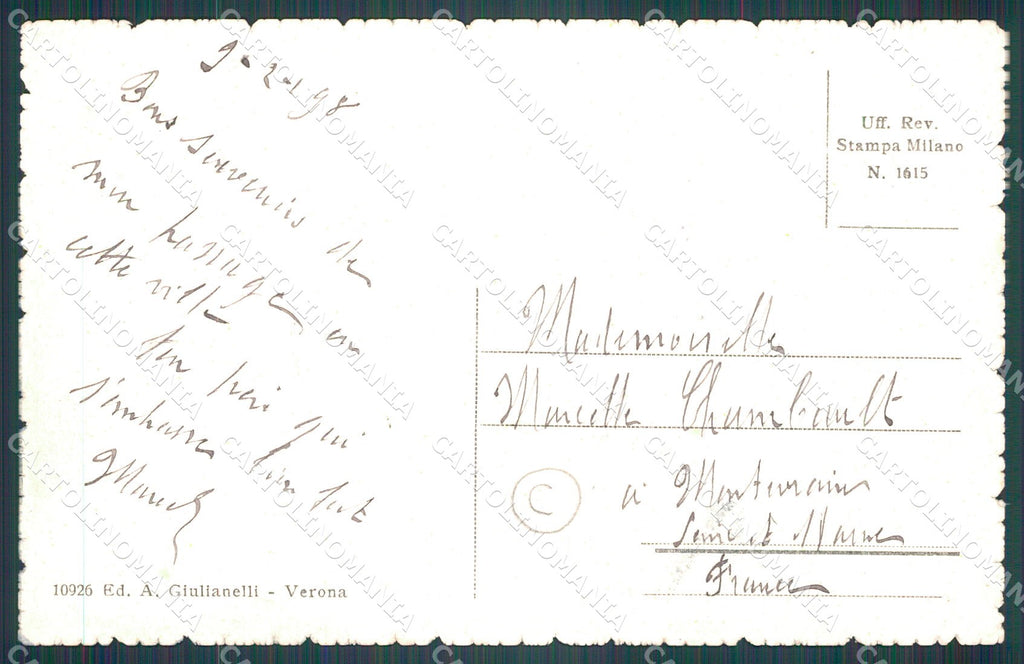 9-2-198
Bons souvenirs de
mon passage en
cette ville
Ton qui
t'embrasse bien fort
Marcel
Uff. Rev.
Stampa Milano
N. 1615
Mademoiselle
Marcelle Chambault
à Montevrain
Seine et Marne
France
C
10926 Ed. A. Giulianelli - Verona
CARTOLINOMANIA